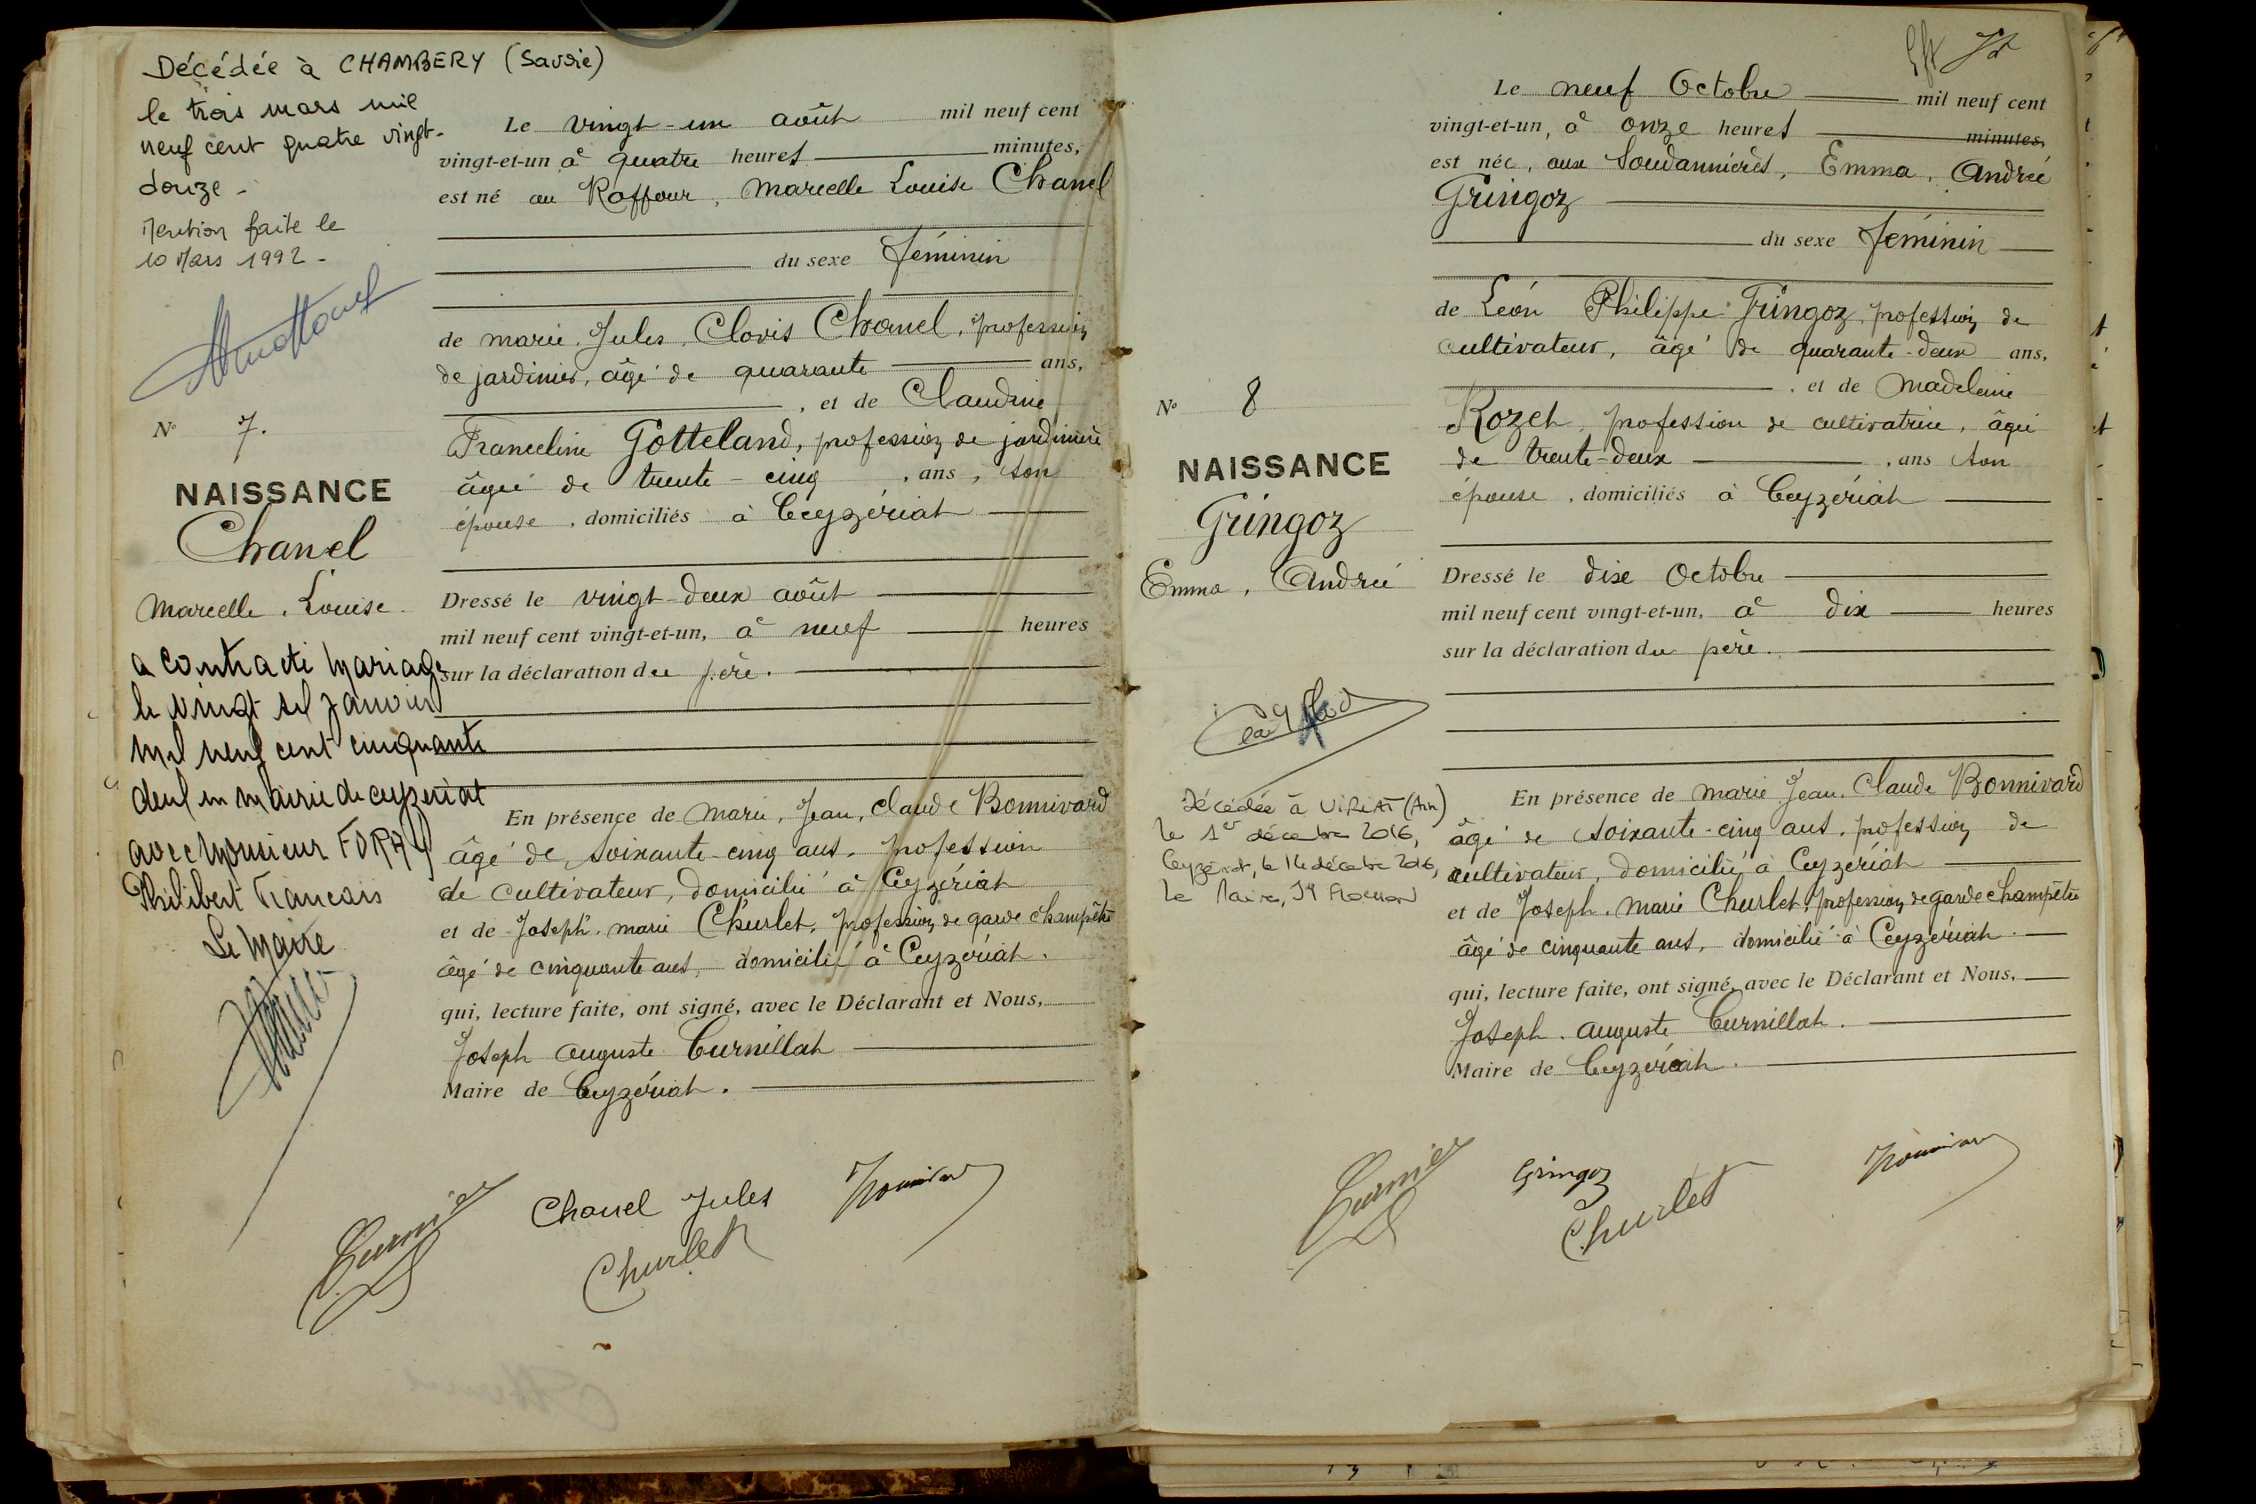 Décédée à CHAMBERY (Savoie)
le trois mars mil
neuf cent quatre vingt-
douze -
Mention faite le
10 Mars 1992 -
N° 7.
NAISSANCE
Chanel
Marcelle, Louise.
a contracté mariage
le vingt six janvier
mil neuf cent cinquante
deux en mairie de ceyzeriat
avec Monsieur FORAY
Philibert Francois
Le Maire
Le vingt-un août mil neuf cent
vingt-et-un à quatre heures minutes,
est né au Raffour, Marcelle Louise Chanel
du sexe féminin
de Marie, Jules, Clovis Chanel, profession
de jardinier, âgé de quarante ans,
, et de Claudine
Franceline Gotteland, profession de jardinière
âgée de trente-cinq, ans, son
épouse, domiciliés à Ceyzériat
Dressé le vingt-deux août
mil neuf cent vingt-et-un, à neuf heures
sur la déclaration du père.
En présence de Marie, Jean, Claude Bonnivard
âgé de soixante-cinq ans, profession
de cultivateur, domicilié à Ceyzériat
et de Joseph, Marie Churlet, profession de garde champêtre
âgé de cinquante ans, domicilié à Ceyzériat.
qui, lecture faite, ont signé, avec le Déclarant et Nous,
Joseph Auguste Curnillat
Maire de Ceyzériat.
Chanel Jules
Churlet
Le neuf Octobre mil neuf cent
vingt-et-un, à onze heures minutes,
est née, aux Soudannières, Emma, Andrée
Gringoz
du sexe féminin
de Léon Philippe Gringoz, profession de
cultivateur, âgé de quarante-deux ans,
, et de Madeleine
Rozet, profession de cultivatrice, âgée
de trente-deux, ans son
épouse, domiciliés à Ceyzériat
Dressé le dix Octobre
mil neuf cent vingt-et-un, à dix heures
sur la déclaration du père.
En présence de Marie Jean, Claude Bonnivard
âgé de soixante-cinq ans, profession de
cultivateur, domicilié à Ceyzériat
et de Joseph, Marie Churlet, profession de garde champêtre
âgé de cinquante ans, domicilié à Ceyzériat.
qui, lecture faite, ont signé, avec le Déclarant et Nous,
Joseph, Auguste Curnillat.
Maire de Ceyzériat.
Gringoz
Churlet
N° 8
NAISSANCE
Gringoz
Emma, Andrée
Décédée à VIRIAT (Ain)
le 1er décembre 2016,
Ceyzériat, le 14 décembre 2016,
Le Maire,